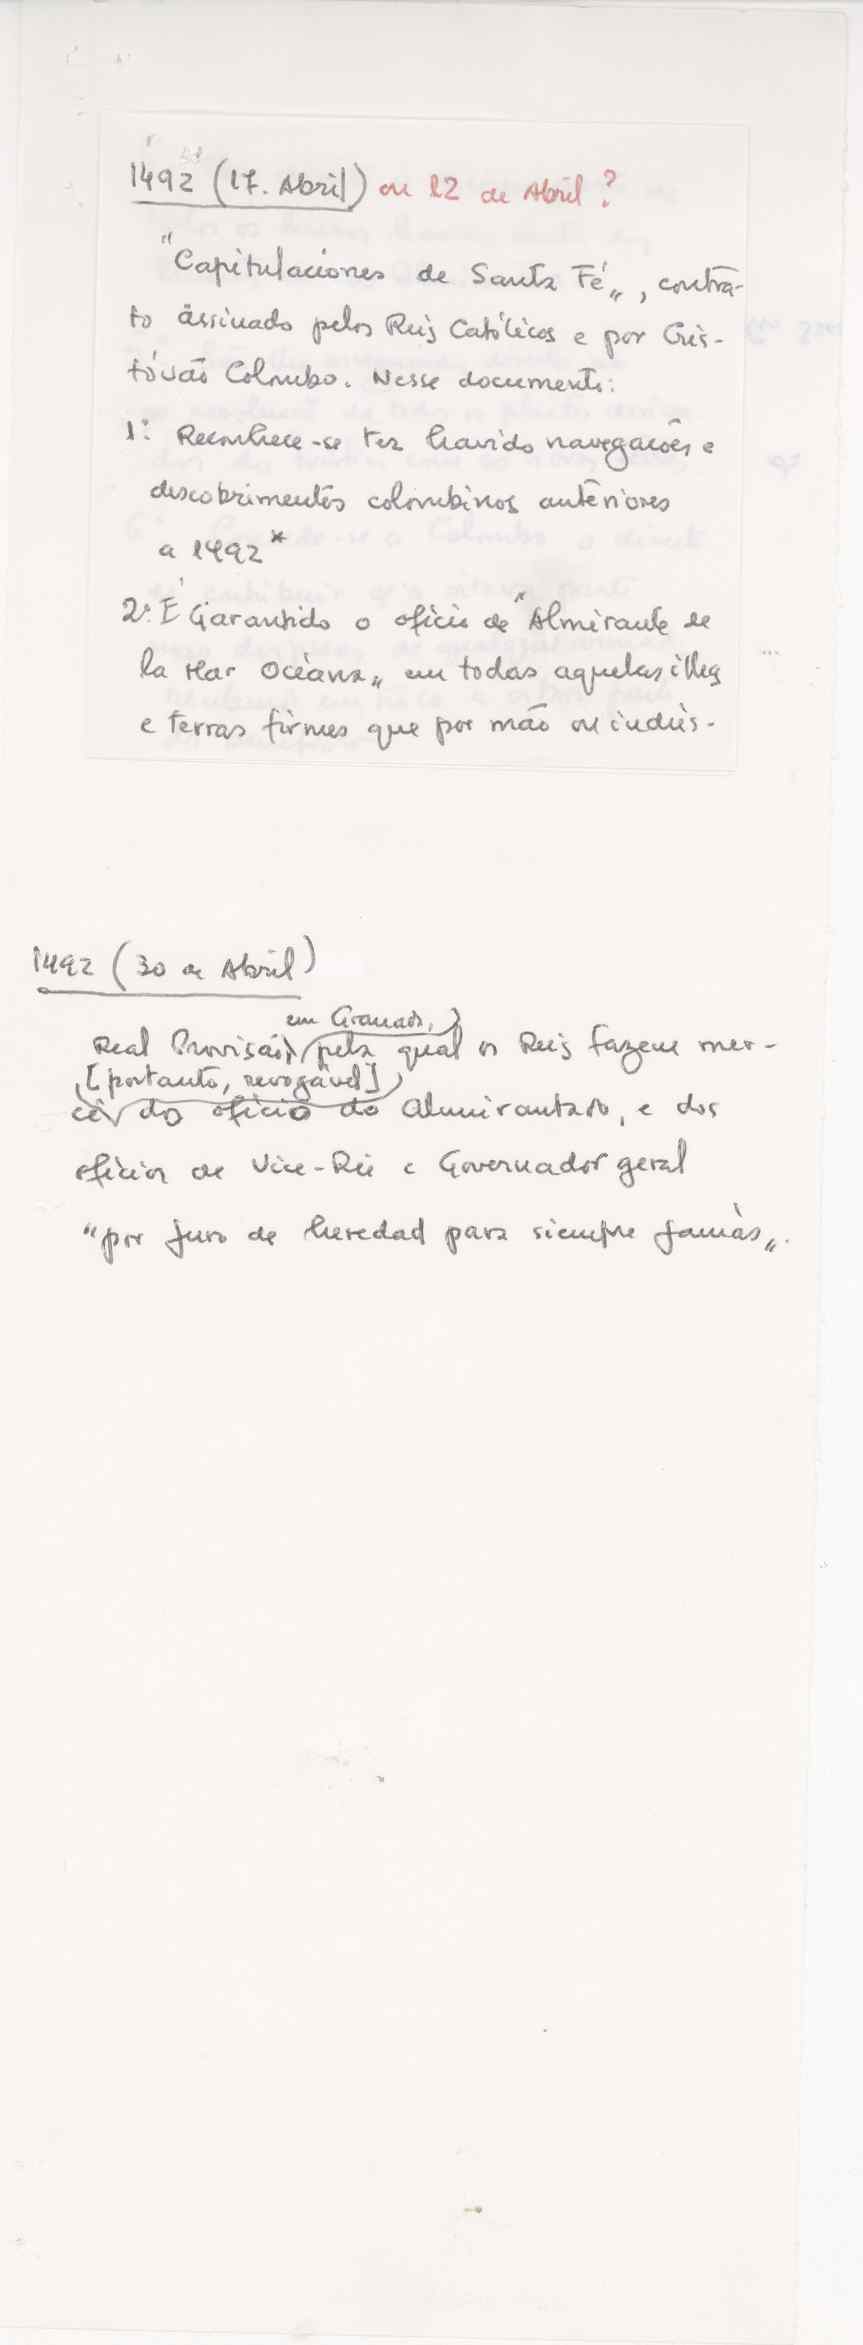 1492 (17. Abril) ou 12 de Abril?
"Capitulaciones de Santa Fé", contra-
to assinado pelos Reis Católicos e por Cris-
tóvão Colombo. Nesse documento:
1º: Reconhece-se ter havido navegações e
descobrimentos colombinos anteriores
a 1492*
2º: É Garantido o ofício de "Almirante de
la Mar Océana" em todas aquelas ilhas
e terras firmes que por mão ou indús-
1492 (30 de Abril)
em Granada,
Real Provisão, pela qual os Reis fazem mer-
[portanto, revogável]
cê do ofício do Almirantado, e dos
ofícios de Vice-Rei e Governador geral
"por juro de heredad para siempre jamás".